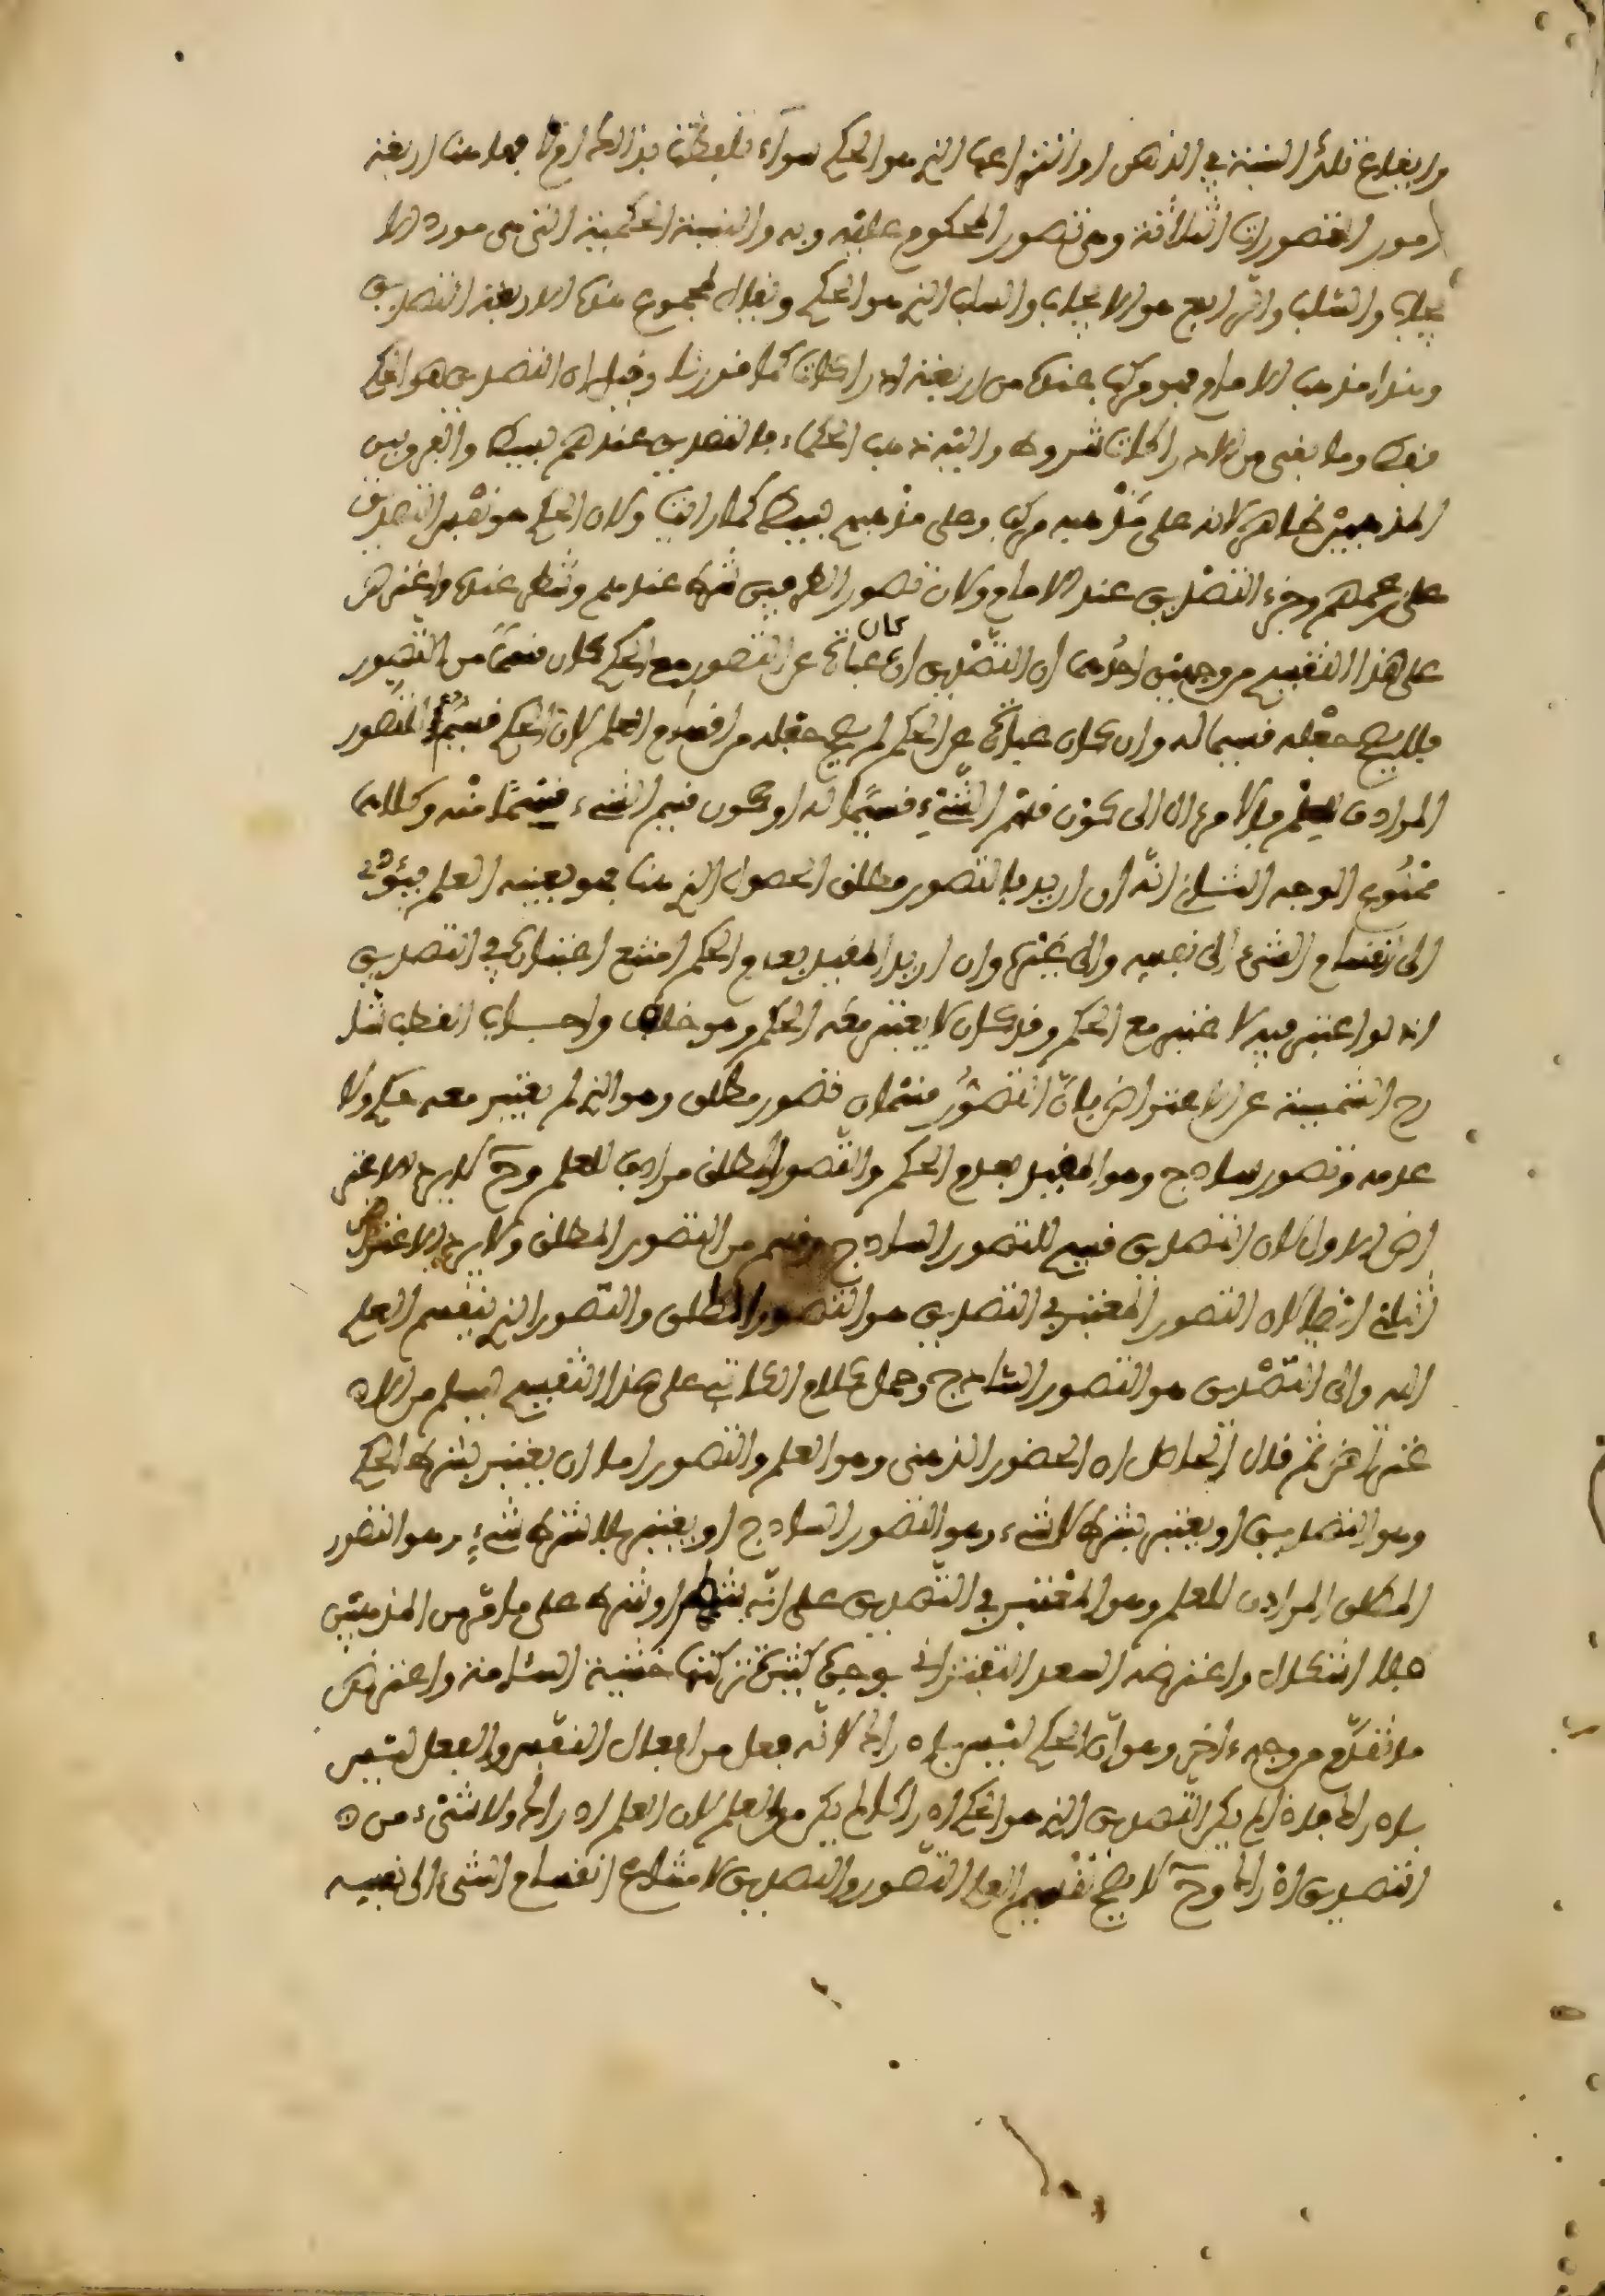 وايقاع تلك النسبة في الذهن او انتزاعها الذي هو الحكم سواء تلفظت بذالك اولا فهاهنا اربعة
امور التصورات الثلاثة وهي تصور المحكوم عليه وبه والنسبة الحكمية التي هي مورد الا
يجاب والسلب والرابع هو الايجاب والسلب الذي هو الحكم ويقال لمجموع هذه الاربعة التصديق
وهذا مذهب الامام فهو مركب عنده من اربعة ادراكات كما قررنا وقيل ان التصديق هو الحكم
فقط وما بقي من الادراكات شروط واليه ذهب الحكماء فالتصديق عندهم بسيط والفرق بين
المذهبين ظاهر لانه على مذهبه مركب وعلى مذهبهم بسيط كما رايت ولان الحكم هو نفس التصديق
على زعمهم وجزء التصديق عند الامام ولان تصور الطرفين شرط عندهم وشطر عنده واعترض
على هذا التقسيم من وجهين احدهما ان التصديق ان كان عبارة عن التصور مع الحكم كان قسما من التصور
فلا يصح جعله قسيما له وان كان عبارة عن الحكم لم يصح جعله من اقسام العلم لان الحكم قسيم التصور
المرادف للعلم فالامر ءال الى كون قسم الشيء قسيما له او كون قسيم الشيء قسما منه وكلاهما
ممنوع الوجه الثاني انه ان اريد بالتصور مطلق الحصول الذي هنا فهو بعينه العلم فيؤدي
الى انقسام الشيء الى نفسه والى غيره وان اريد المقيد بعدم الحكم امتنع اعتباره في التصديق
اذ لو اعتبر فيه لاعتبر مع الحكم وقد كان لا يعتبر معه الحكم وهو خلف واجاب القطب شا
رح الشمسية عن الاعتراض بان التصور قسمان تصور مطلق وهو الذي لم يعتبر معه حكم ولا
عدمه وتصور ساذج وهو المقيد بعدم الحكم والتصور المطلق مرادف للعلم وح لا يرد الاعتر
اض الاول لان التصديق قسيم للتصور الساذج وقسم من التصور المطلق ولا يرد الاعتراض
الثاني ايضا لان التصور المعتبر في التصديق هو التصور المطلق والتصور الذي ينقسم العلم
اليه والى التصديق هو التصور الساذج وحمل كلام الكاتبي على هذا التقسيم ليسلم من الا
عتراض ثم قال الحاصل ان الحضور الذهني وهو العلم والتصور اما ان يعتبر بشرط الحكم
وهو التصديق او يعتبر بشرط لا شيء وهو التصور الساذج او يعتبر بلا شرط شيء وهو التصور
المطلق المرادف للعلم وهو المعتبر في التصديق على انه شطر او شرط على ما مر من المذهبين
فلا اشكال واعترضه السعد التفتزاني بوجوه كثيرة تركتها خشية السئامة واعترض
ما تقدم من وجه ءاخر وهو ان الحكم ليس بادراك لانه فعل من افعال النفس والفعل ليس
بادراك فاذا لم يكن التصديق الذي هو الحكم ادراكا لم يكن من العلم لان العلم ادراك ولا شيء من
التصديق ادراك وح لا يصح تقسيم العلم التصور والتصديق لامتناع انقسام الشيء الى نفسه